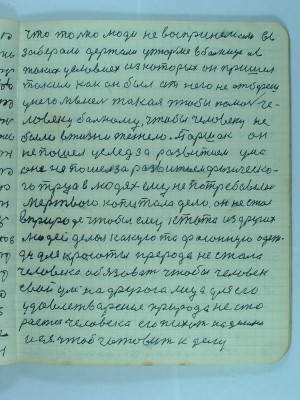 что только люди не воспринимали вы
забирали держали утюгме в больнице и
таких условиях из которых он пришел
таким как он был от него не отбирали
у него мысли такая чтобы помочь че-
ловеку больному, чтобы человеку не
было в жизни тяжело. Паршек он
не пошел услед за развитием ума
он е не пошел за развитием физическо-
го труда в людях ему не потребовался
мертвого капитала дело, он не стал
в природе чтобы ему кто то из других
людей делал какую то фасонную одеж-
ду для красоты природа не стала
человека обязовать чтобы человек
свой ум на другого лица для его
удовлетварения природа не сто
рается человека его техут надеяно
и ея чтоб готовит к делу